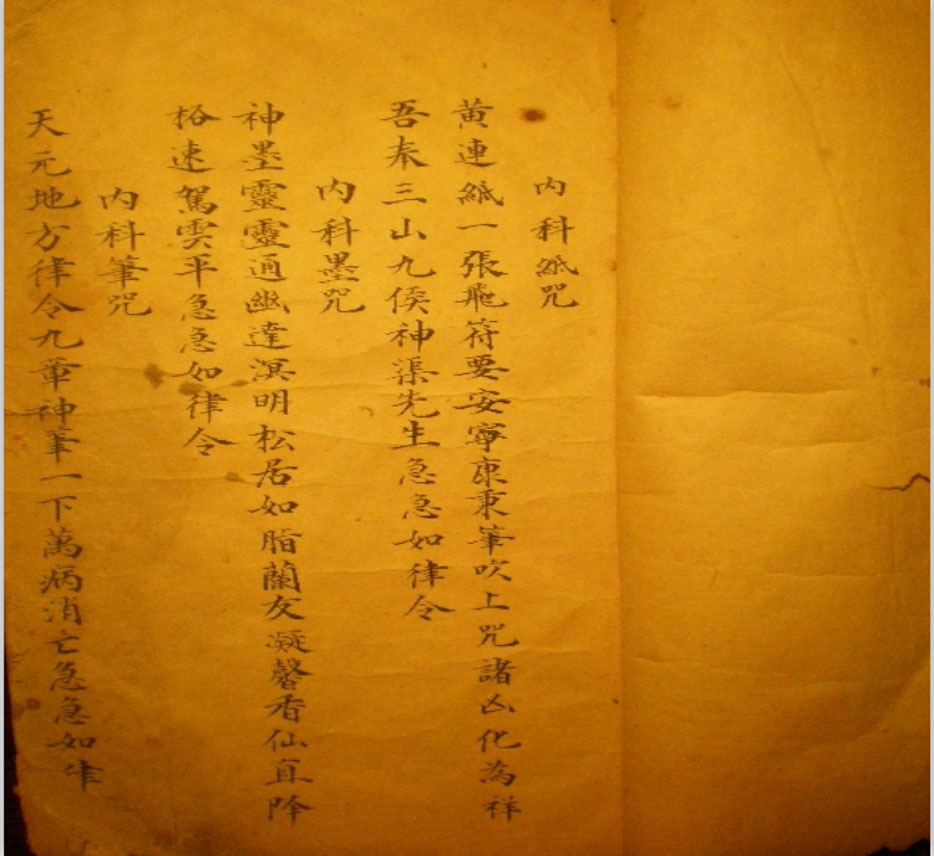 内科紙咒
黄連紙一張飛符要安寧康秉筆吹上咒諸凶化為祥
吾奉三山九侯神渠先生急急如律令
内科墨咒
神墨靈靈通幽達溟明松居如脂蘭友凝馨香仙真降
格速駕雲平急急如律令
内科筆咒
天元地方律令九章神筆一下萬病消亡急急如律